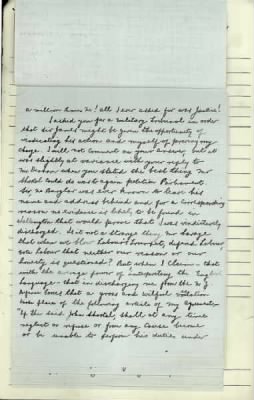 a million times no! all I ever asked for was Justice!
I asked you for a military tribunal in order
that Sir James might be given the opportunity of
vindicating his action and myself of proving my
charge. I will not comment on your answer but it
was slightly at variance with your reply to
when you stated the best thing Mr
Shotel could do was to petition Parliament.
Sir no burglar was ever known to leave his
name and address behind and for a corresponding
reason no evidence is likely to be found in
Wellington that would prove that I was vindictively
discharged. Is it not a strange thing Mr Savage
that when we blow Labour's trumpet, defend Labour
vote Labour that neither our reason or our
honesty is questioned? But when I claim - that
with the average power of interpreting the English
language - that in discharging me from the N Z
a gross and wilful violation
took place of the following article of my agreement
"If the said John Shotel, shall at any time
neglect or refuse or from any cause become
or be unable to perform his duties under